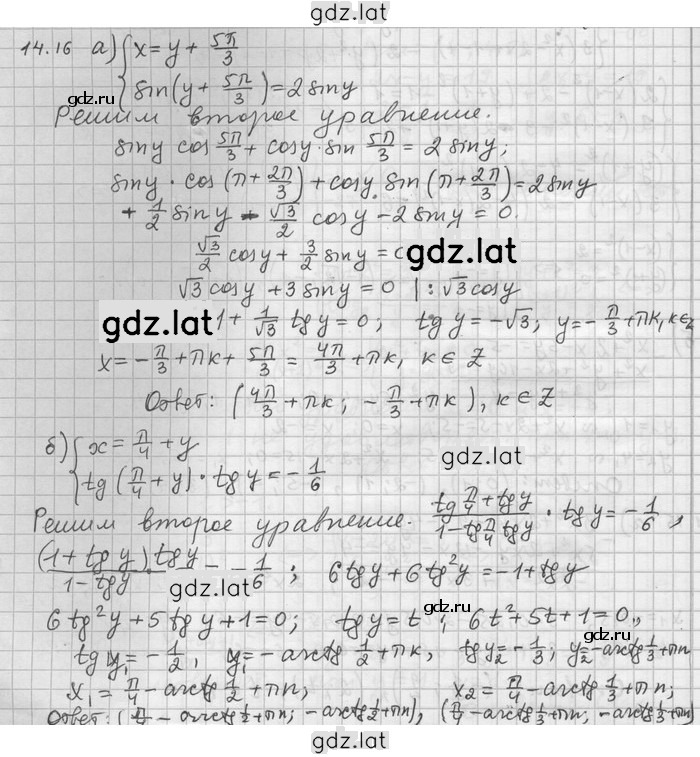 gdz.lat
14.16 а) { x = y + 5π/3
gdz.lat
{ sin(y + 5π/3) = 2 sin y
Решим второе уравнение.
sin y cos 5π/3 + cos y · sin 5π/3 = 2 sin y;
sin y · cos (π + 2π/3) + cos y · sin (π + 2π/3) = 2 sin y
+ 1/2 sin y - √3/2 cos y - 2 sin y = 0.
√3/2 cos y + 3/2 sin y = 0
gdz.lat
√3 cos y + 3 sin y = 0 | : √3 cos y
gdz.lat
1 + 1/√3 tg y = 0; tg y = -√3; y = -π/3 + πk, k∈Z
x = -π/3 + πk + 5π/3 = 4π/3 + πk, k ∈ Z
Ответ: (4π/3 + πk; -π/3 + πk), k ∈ Z
б) { x = π/4 + y
{ tg (π/4 + y) · tg y = -1/6
gdz.lat
Решим второе уравнение. (tg π/4 + tg y)/(1 - tg π/4 tg y) · tg y = -1/6,
(1 + tg y) tg y/(1 - tg y) = -1/6; 6 tg y + 6 tg² y = -1 + tg y
gdz.lat
6 tg² y + 5 tg y + 1 = 0; tg y = t; 6t² + 5t + 1 = 0.,
gdz.lat
tg y₁ = -1/2, y₁ = -arctg 1/2 + πk, tg y₂ = -1/3; y₂ = -arctg 1/3 + πn
x₁ = π/4 - arctg 1/2 + πn; x₂ = π/4 - arctg 1/3 + πn;
Ответ: (π/4 - arctg 1/2 + πn; -arctg 1/2 + πn), (π/4 - arctg 1/3 + πn; -arctg 1/3 + πn)
gdz.lat